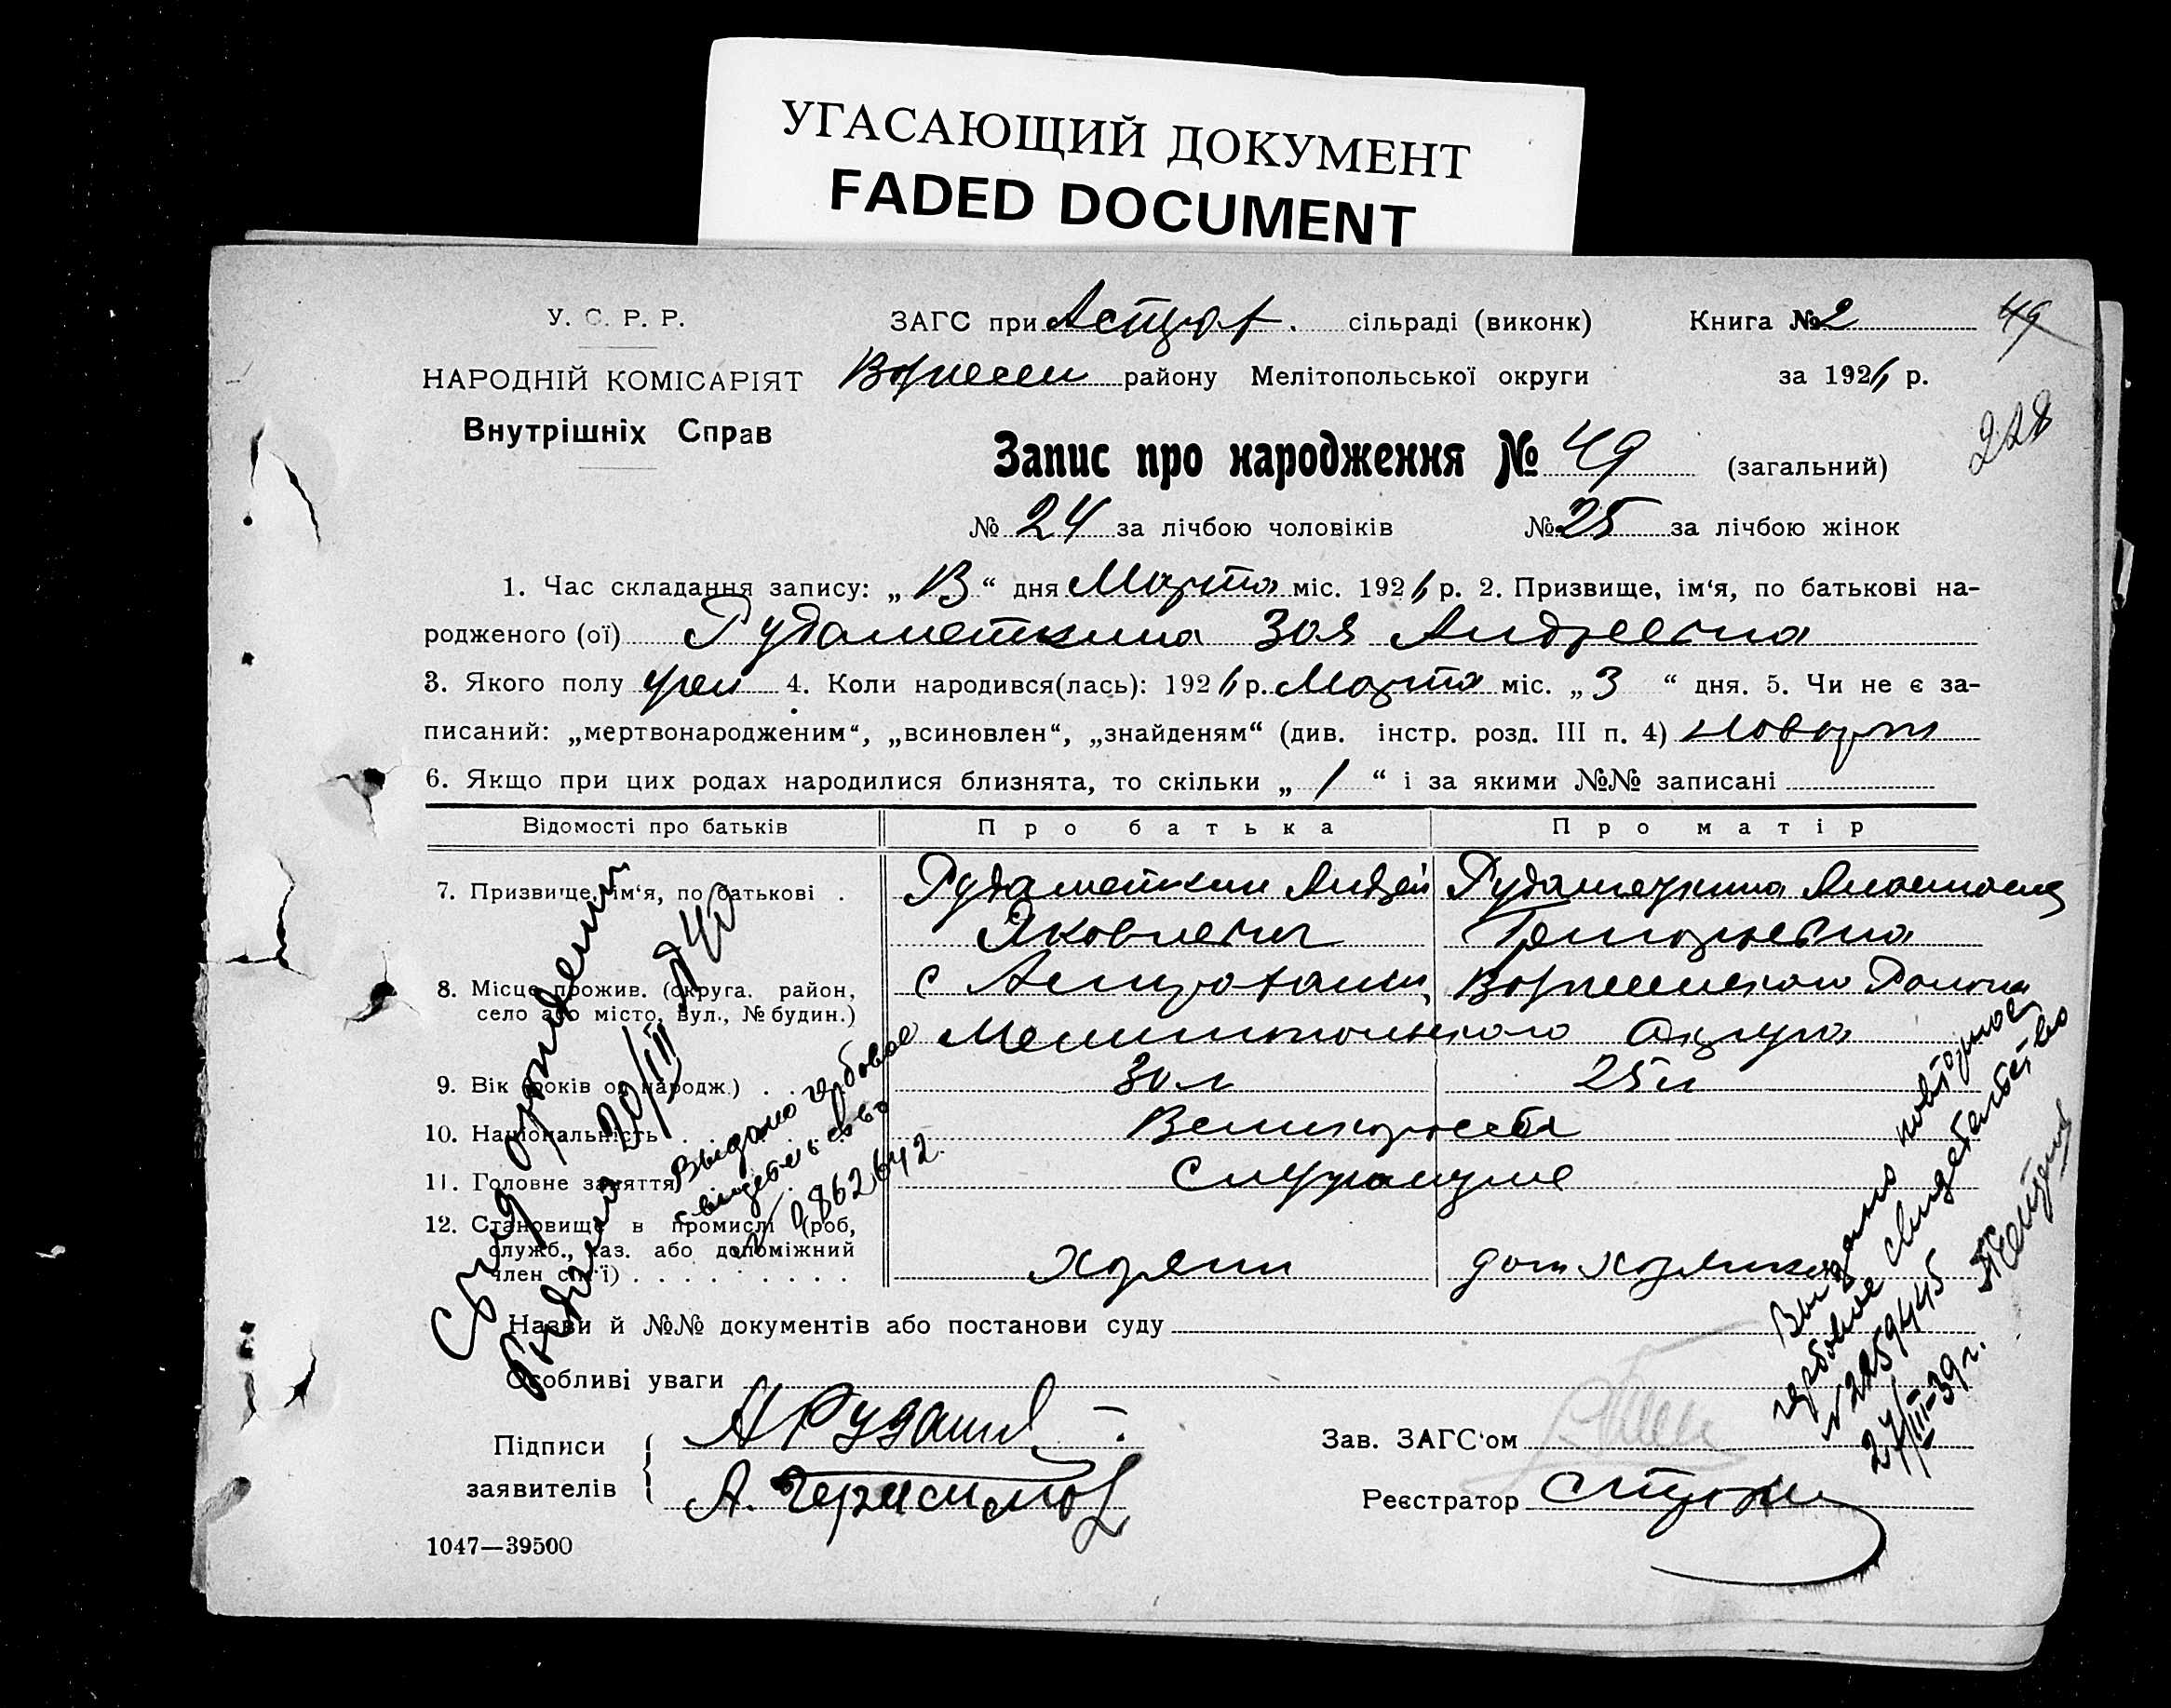 УГАСАЮЩИЙ ДОКУМЕНТ
FADED DOCUMENT
У. С. Р. Р.
НАРОДНІЙ КОМІСАРІЯТ
Внутрішніх Справ
ЗАГС при Астрах. сільраді (виконк)
района Мелітопольської округи
Книга № 2
49
за 1926 р.
228
Запис про народження № 49 (загальний)
№ 24 за лічбою чоловіків № 25 за лічбою жінок
1. Час складання запису: „ 13 “ дня Марта міс. 1926 р. 2. Призвище, ім‘я, по батькові на-
родженого (ої) Рудаметкина Зоя Андреевна
3. Якого полу жен 4. Коли народився(лась): 1926 р. Марта міс. „ 3 “ дня. 5. Чи не є за-
писаний: „мертвонародженим“, „всиновлен“, „знайденям“ (див. інстр. розд. III п. 4)
6. Якщо при цих родах народилися близнята, то скільки „ 1 “ і за якими №№ записані
Відомості про батьків Про батька Про матір
7. Призвище, ім‘я, по батькові . Рудаметкин Андрей Рудаметкина Анастасия
Яковлевич
8. Місце прожив. (округа. район,
село або місто, вул., № будин.)
с Астраханки, Района
Мелитопольского Округа
9. Вік (років од народж.) . . 30 л 25 л
10. Національність . . . Великороссы
11. Головне заняття
12. Становище в промислі (роб,
служб., хаз. або допоміжний
член сім‘ї) . . . . . . . . .
Хозяин дом хозяйка
Назви й №№ документів або постанови суду
Особливі уваги
Підписи
заявителів
А Рудам
А. Герасимов
Зав. ЗАГС‘ом
Реєстратор
1047—39500
Выдано 20/III
Выдано гербовое
свидетельство
№ 9862642.
Выдано повторное
гербовое свидетельство
№ 2259445
27/III-39 г.